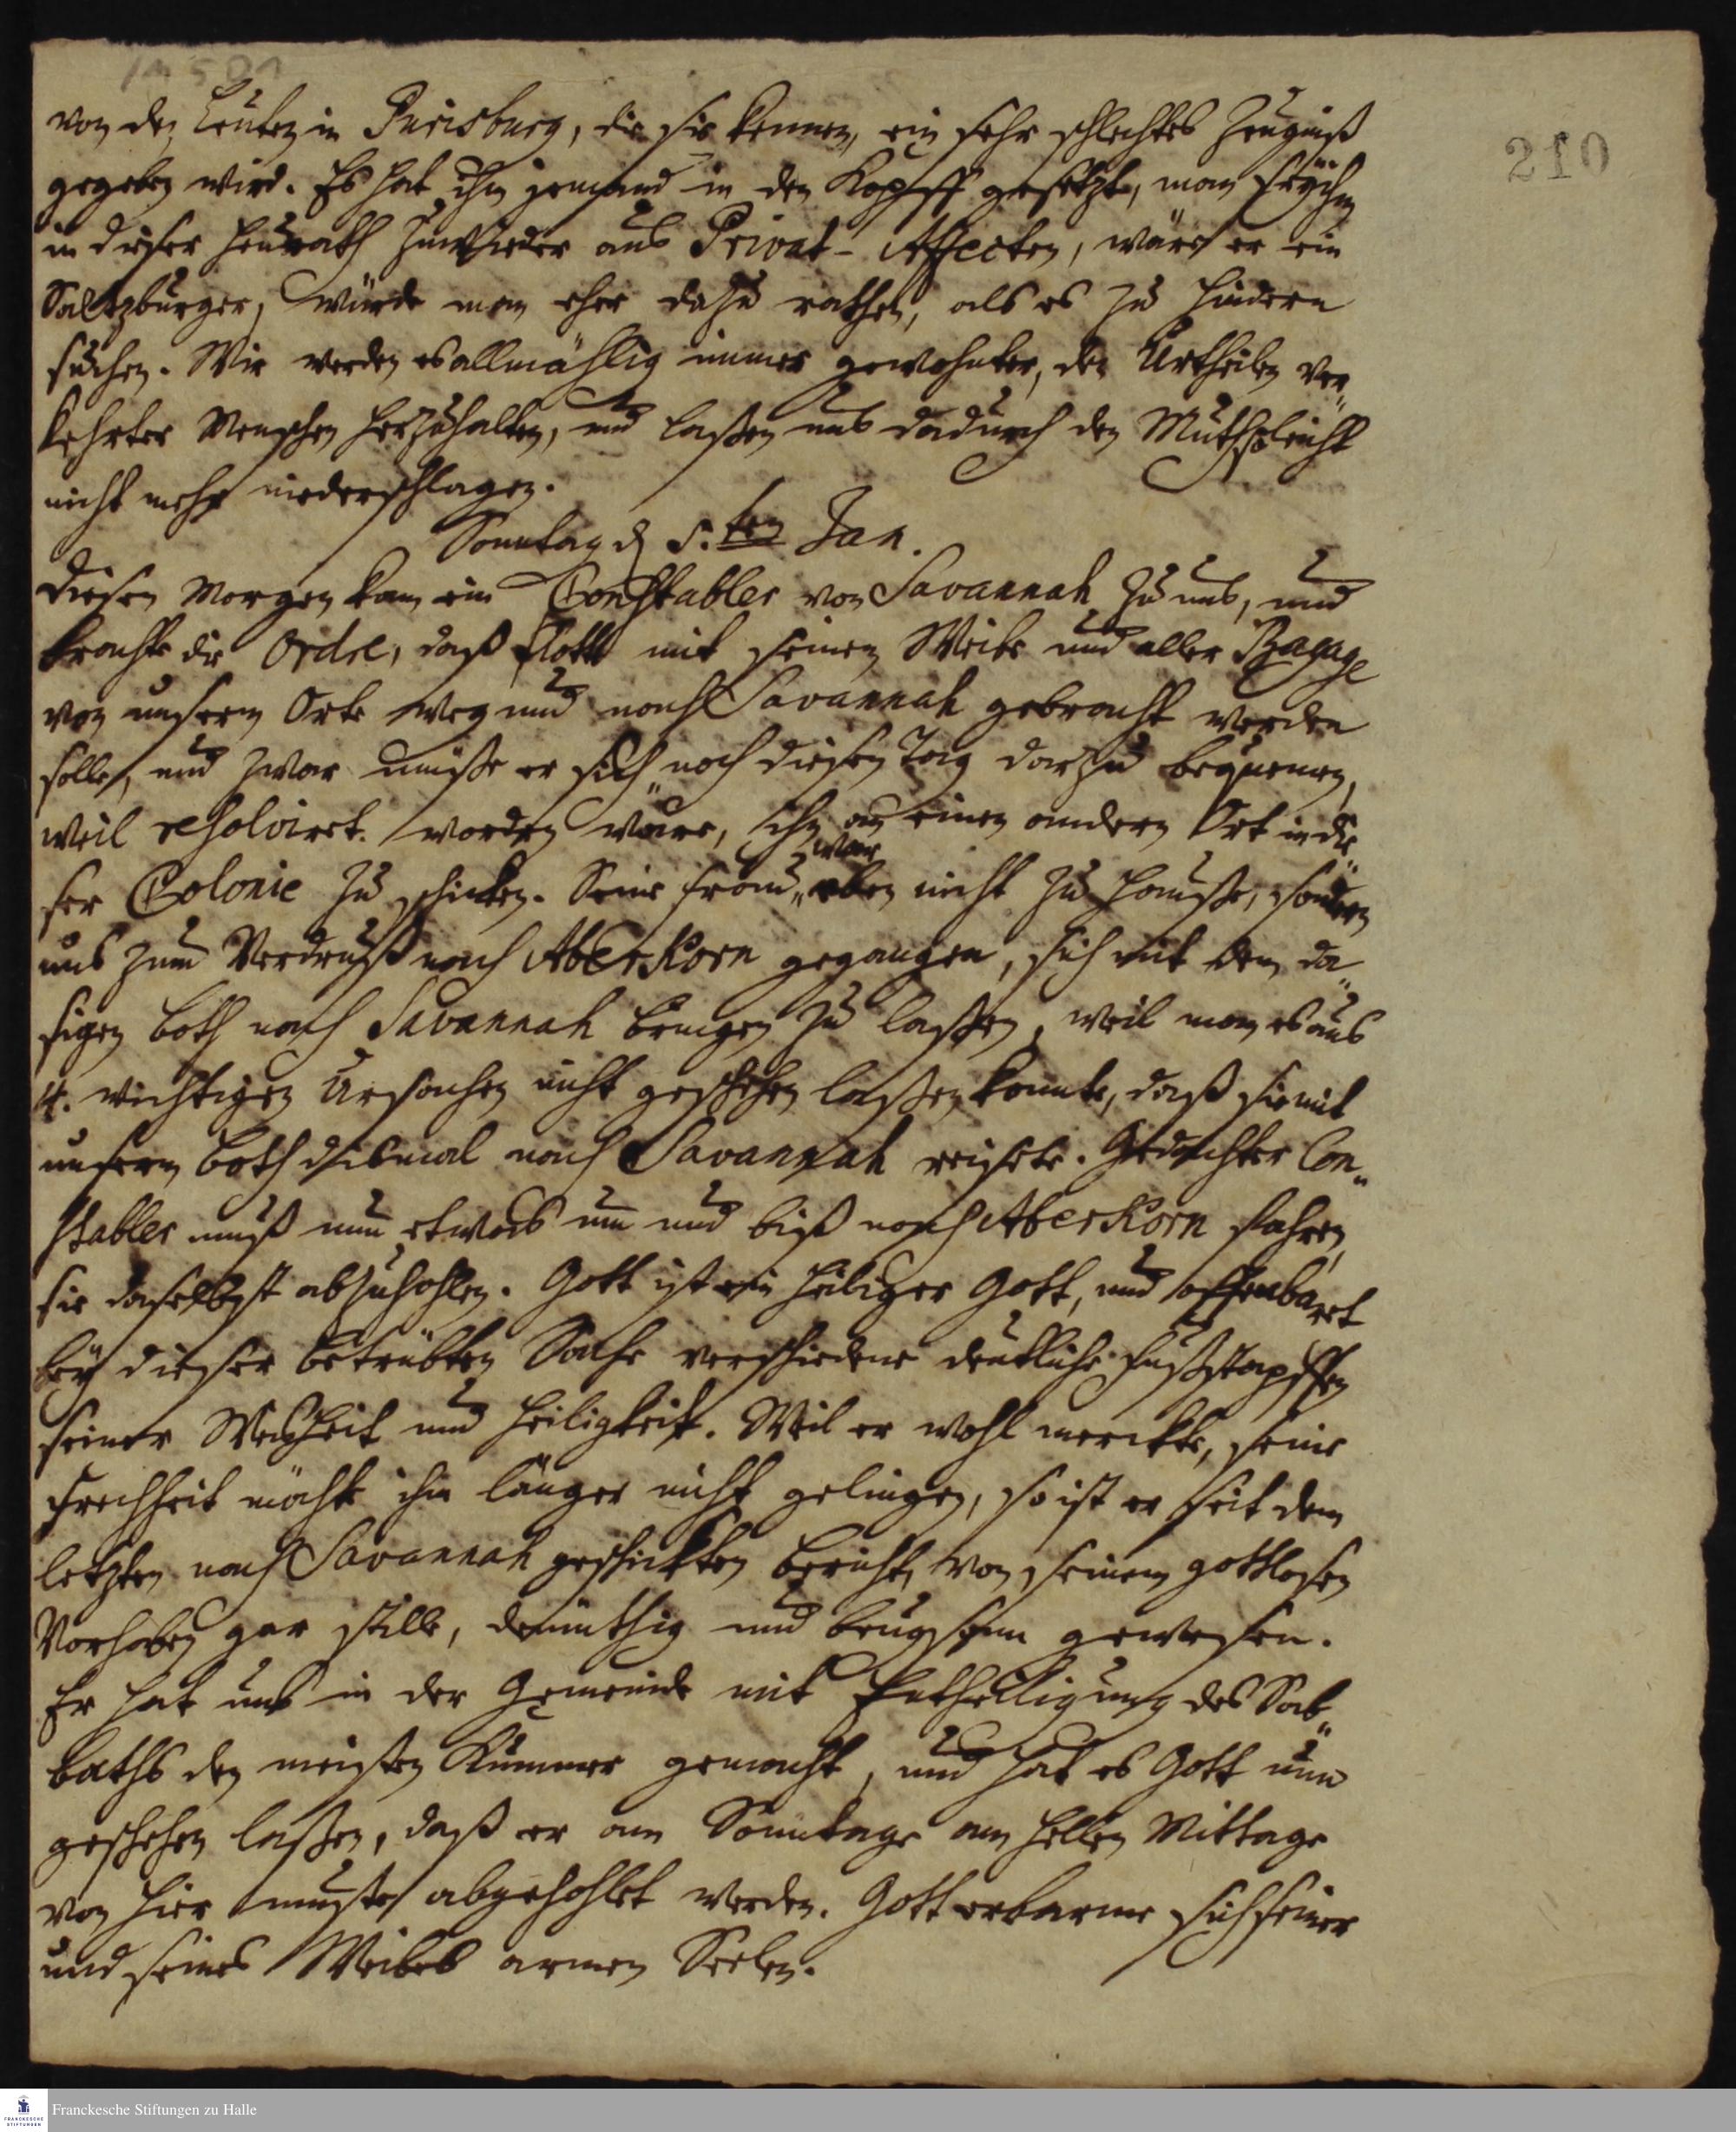 210
von den Leuten in Purisburg, die sie kennen, ein sehr schlechtes Zeugniß
gegeben wird. Es hat ihm jemand in den Kopff gesetzt, man seÿ ihm
in dieser Heurath zuwieder aus Privat-Affecten, wäre er ein
Saltzburger, würde man eher dazu rathen, als es zu hindern
suchen. Wir werden es allmählig immer gewohnter, den Urtheilen ver„
kehrter Menschen herzuhalten, und laßen uns dadurch den Muth leicht
nicht mehr niederschlagen.
Sonntag d 5.ten Jan.
Diesen Morgen kam ein Constabler von Savannah zu uns, und
brachte die Ordre, daß Rott mit seinem Weibe und aller Bagage
von unserm Orte weg und nach Savannah gebracht werden
solle, und zwar müße er sich noch diesen Tag darzu bequemen,
weil resolvirt worden wäre, ihn an einen andern Ort in die„
ser Colonie zu schicken. Seine Frau war eben nicht zu Hauße, sondern
uns zum Verdruß nach Aberkorn gegangen, sich mit dem da„
sigen Both nach Savannah bringen zu laßen, weil man es aus
4. wichtigen Ursachen nicht geschehen laßen konnte, daß sie mit
unserm Both dismal nach Savannah reisete. Gedachter Con„
stabler muß nun etwas um und biß nach Aberkorn fahren,
sie daselbst abzuhohlen. Gott ist ein heiliger Gott, und offenbaret
beÿ dieser betrübten Sache verschiedene deutliche Fußstapffen
seiner Weißheit und Heiligkeit. Weil er wohl merckte, seine
Frechheit möchte ihm länger nicht gelingen, so ist er seit dem
letzten nach Savannah geschickten Bericht, von seinem gottlosen
Vorhaben gar stille, demüthig und beugsam gewesen.
Er hat uns in der Gemeinde mit Entheiligung des Sab„
baths den meisten Kummer gemacht, und hat es Gott nun
geschehen laßen, daß er am Sonntage am hellen Mittage
von hier muste abgehohlet werden. Gott erbarme sich seiner
und seines Weibes armen Seelen.
FRANCKESCHE STIFTUNGEN
Franckesche Stiftungen zu Halle